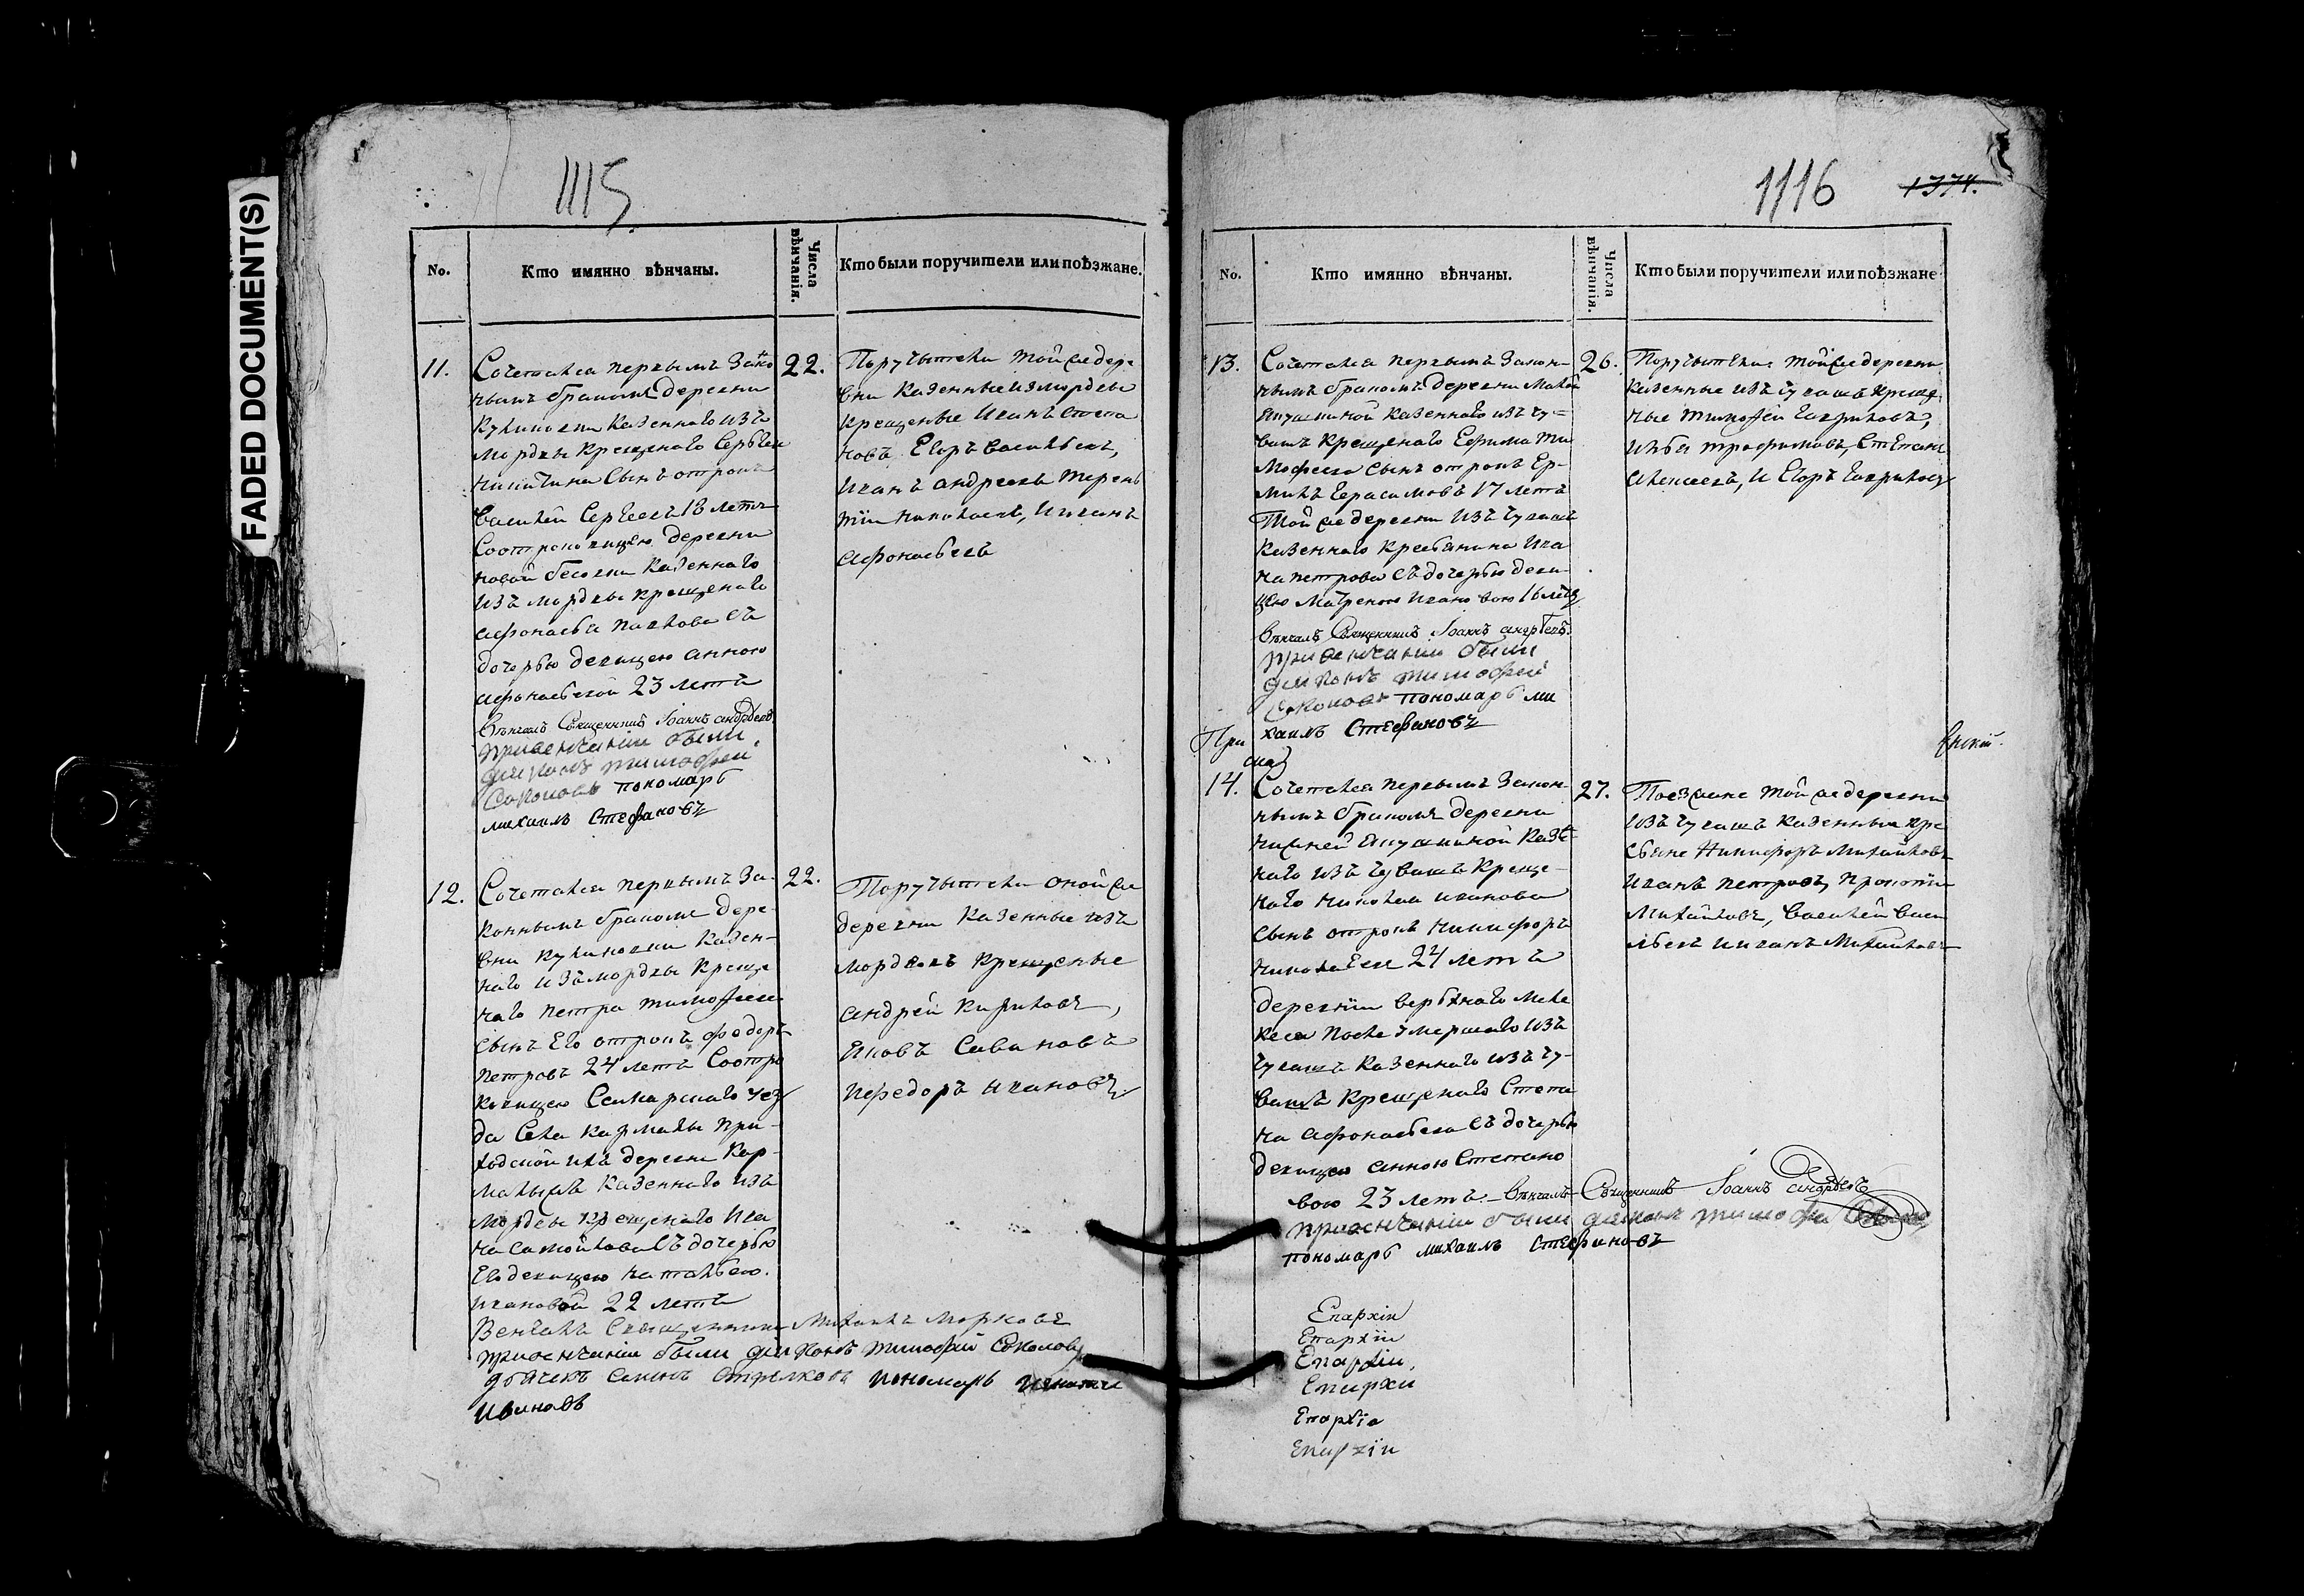 FADED DOCUMENT(S)
1115
No.
Кто имянно вѣнчаны.
Числа вѣнчанія.
Кто были поручители или поѣзжане.
11.
Сочетался первымъ Зако
ннымъ бракомъ деревни
Казеннаго изъ
Мордвы Крещенаго
Никитина Сынъ отрокъ
Василей Сергеевъ 18 летъ
Соотроковицею деревни
новой бесовки Казеннаго
изъ мордвы крещенаго
афонасья Павлова съ
дочерью девицею анною
афонасьевой 23 летъ
Венчалъ Священникъ Іоаннъ андреевъ
при венчаніи были
диаконъ тимофей
Соколовъ пономарь
михаилъ Стефановъ
22.
Поручители той же дере
вни Казенные из мордвы
крещеные Иванъ Степа
новъ Егоръ Васильевъ,
Иванъ андреевъ терень
тїи николаевъ, Иванъ
афонасьевъ
12.
Сочетался первымъ За-
коннымъ бракомъ дере-
вни Казен-
наго изъ мордвы Креще
наго петра тимофеева
сынъ Его отрокъ федоръ
петровъ 24 летъ Соотро
ковицею Самарскаго уез
да Села Кармалы при-
ходской ихъ деревни Кар-
малы Казеннаго изъ
Мордвы крещенаго Ива
на самойлова Съ дочерью
Его девицею натальею
ивановой 22 летъ
Венчалъ Священникъ Михаилъ Морковъ
при венчаніи были диаконъ тимофей Соколовъ
дьячекъ Стрелковъ пономарь
Ивановъ
22.
Поручители оной же
деревни Казенные изъ
мордвовъ Крещеные
андрей Кириловъ,
Яковъ Савановъ
Ифедоръ ивановъ
1116
1374.
No.
Кто имянно вѣнчаны.
Числа вѣнчанія.
Кто были поручители или поѣзжане
13.
Сочетался первымъ Закон-
нымъ бракомъ деревни Малой
Якушкиной Казеннаго изъ чу-
вашъ Крещенаго Ефима Ти
мофеева сынъ отрокъ Ер-
милъ Герасимовъ 17 летъ
Той же деревни Изъ чувашъ
Казеннаго Крестьянина Ива
на петрова съ дочерью деви-
цею Матреною Ивановою 16 летъ
Венчалъ Священникъ Іоаннъ андреевъ
при венчании были
диаконъ тимофей
Соколовъ пономарь ми
хаилъ Стефановъ
26.
Поручители той же деревни
Казенные изъ чувашъ креще
ные тимофей Гавриловъ,
Илья трофимовъ, Степанъ
алексеевъ, И Егоръ Гавриловъ
14.
Сочетался первымъ Закон-
нымъ бракомъ деревни
нижней Якушкиной Казе
наго изъ чувашъ Креще-
наго николая иванова
сынъ отрокъ никифоръ
николаевъ 24 летъ
деревнїи верхняго меле
кеса после умершаго изъ
чувашъ Казеннаго изъ чу-
вашъ крещенаго Степа
на афонасьева съ дочерью
девицею анною Степано
вою 23 летъ. Венчалъ Священникъ Іоаннъ андреевъ
при венчаніи были диаконъ тимофей Соколовъ
пономарь михаилъ Стефановъ
27.
Поезжане той же деревни
изъ чувашъ Казенныя кре
стьяне Никифоръ Михайловъ
Иванъ петровъ, прокопїи
Михайловъ, Василей Васи
льевъ и иванъ Михайловъ
Епархіи
Епархїи
Епархіи,
Епархи
Епархїа
Епархїи